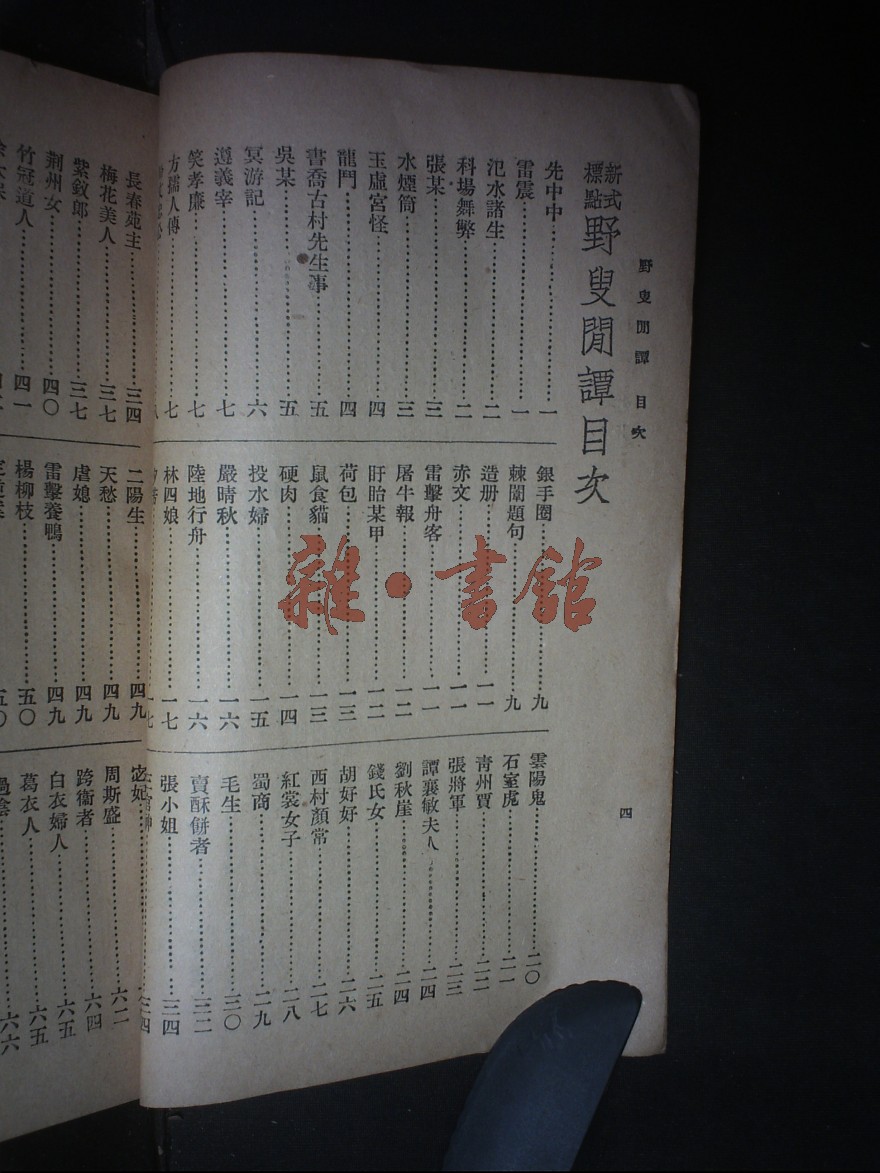 野叟閒譚 目次
四
新式標點 野叟閒譚目次
先中中……一
雷震……一
汜水諸生……二
科場舞弊……二
張某……三
水煙筒……三
玉虛宮怪……四
龍門……四
書喬古村先生事……五
吳某……五
冥游記……六
遵義宰……七
笑孝廉……七
方孺人傳……七
銀手圈……九
棘闈題句……九
造册……一一
赤文……一一
雷擊舟客……一一
屠牛報……一二
盱眙某甲……一二
荷包……一三
鼠食貓……一三
硬肉……一四
投水婦……一五
嚴晴秋……一六
陸地行舟……一六
林四娘……一七
雲陽鬼……二〇
石室虎……二一
青州賈……二二
張將軍……二三
譚襄敏夫人……二四
劉秋崖……二四
錢氏女……二五
胡好好……二六
西村顏常……二七
紅裳女子……二八
蜀商……二九
毛生……三〇
賣酥餅者……三二
張小姐……三四
長春苑主……三四
梅花美人……三七
紫釵郎……三七
荆州女……四〇
竹冠道人……四一
二陽生……四九
天愁……四九
虐媳……四九
雷擊養鴨……四九
楊柳枝……五〇
宓妃
周斯盛……六二
跨衞者……六四
白衣婦人……六五
葛衣人……六五
雜·書館